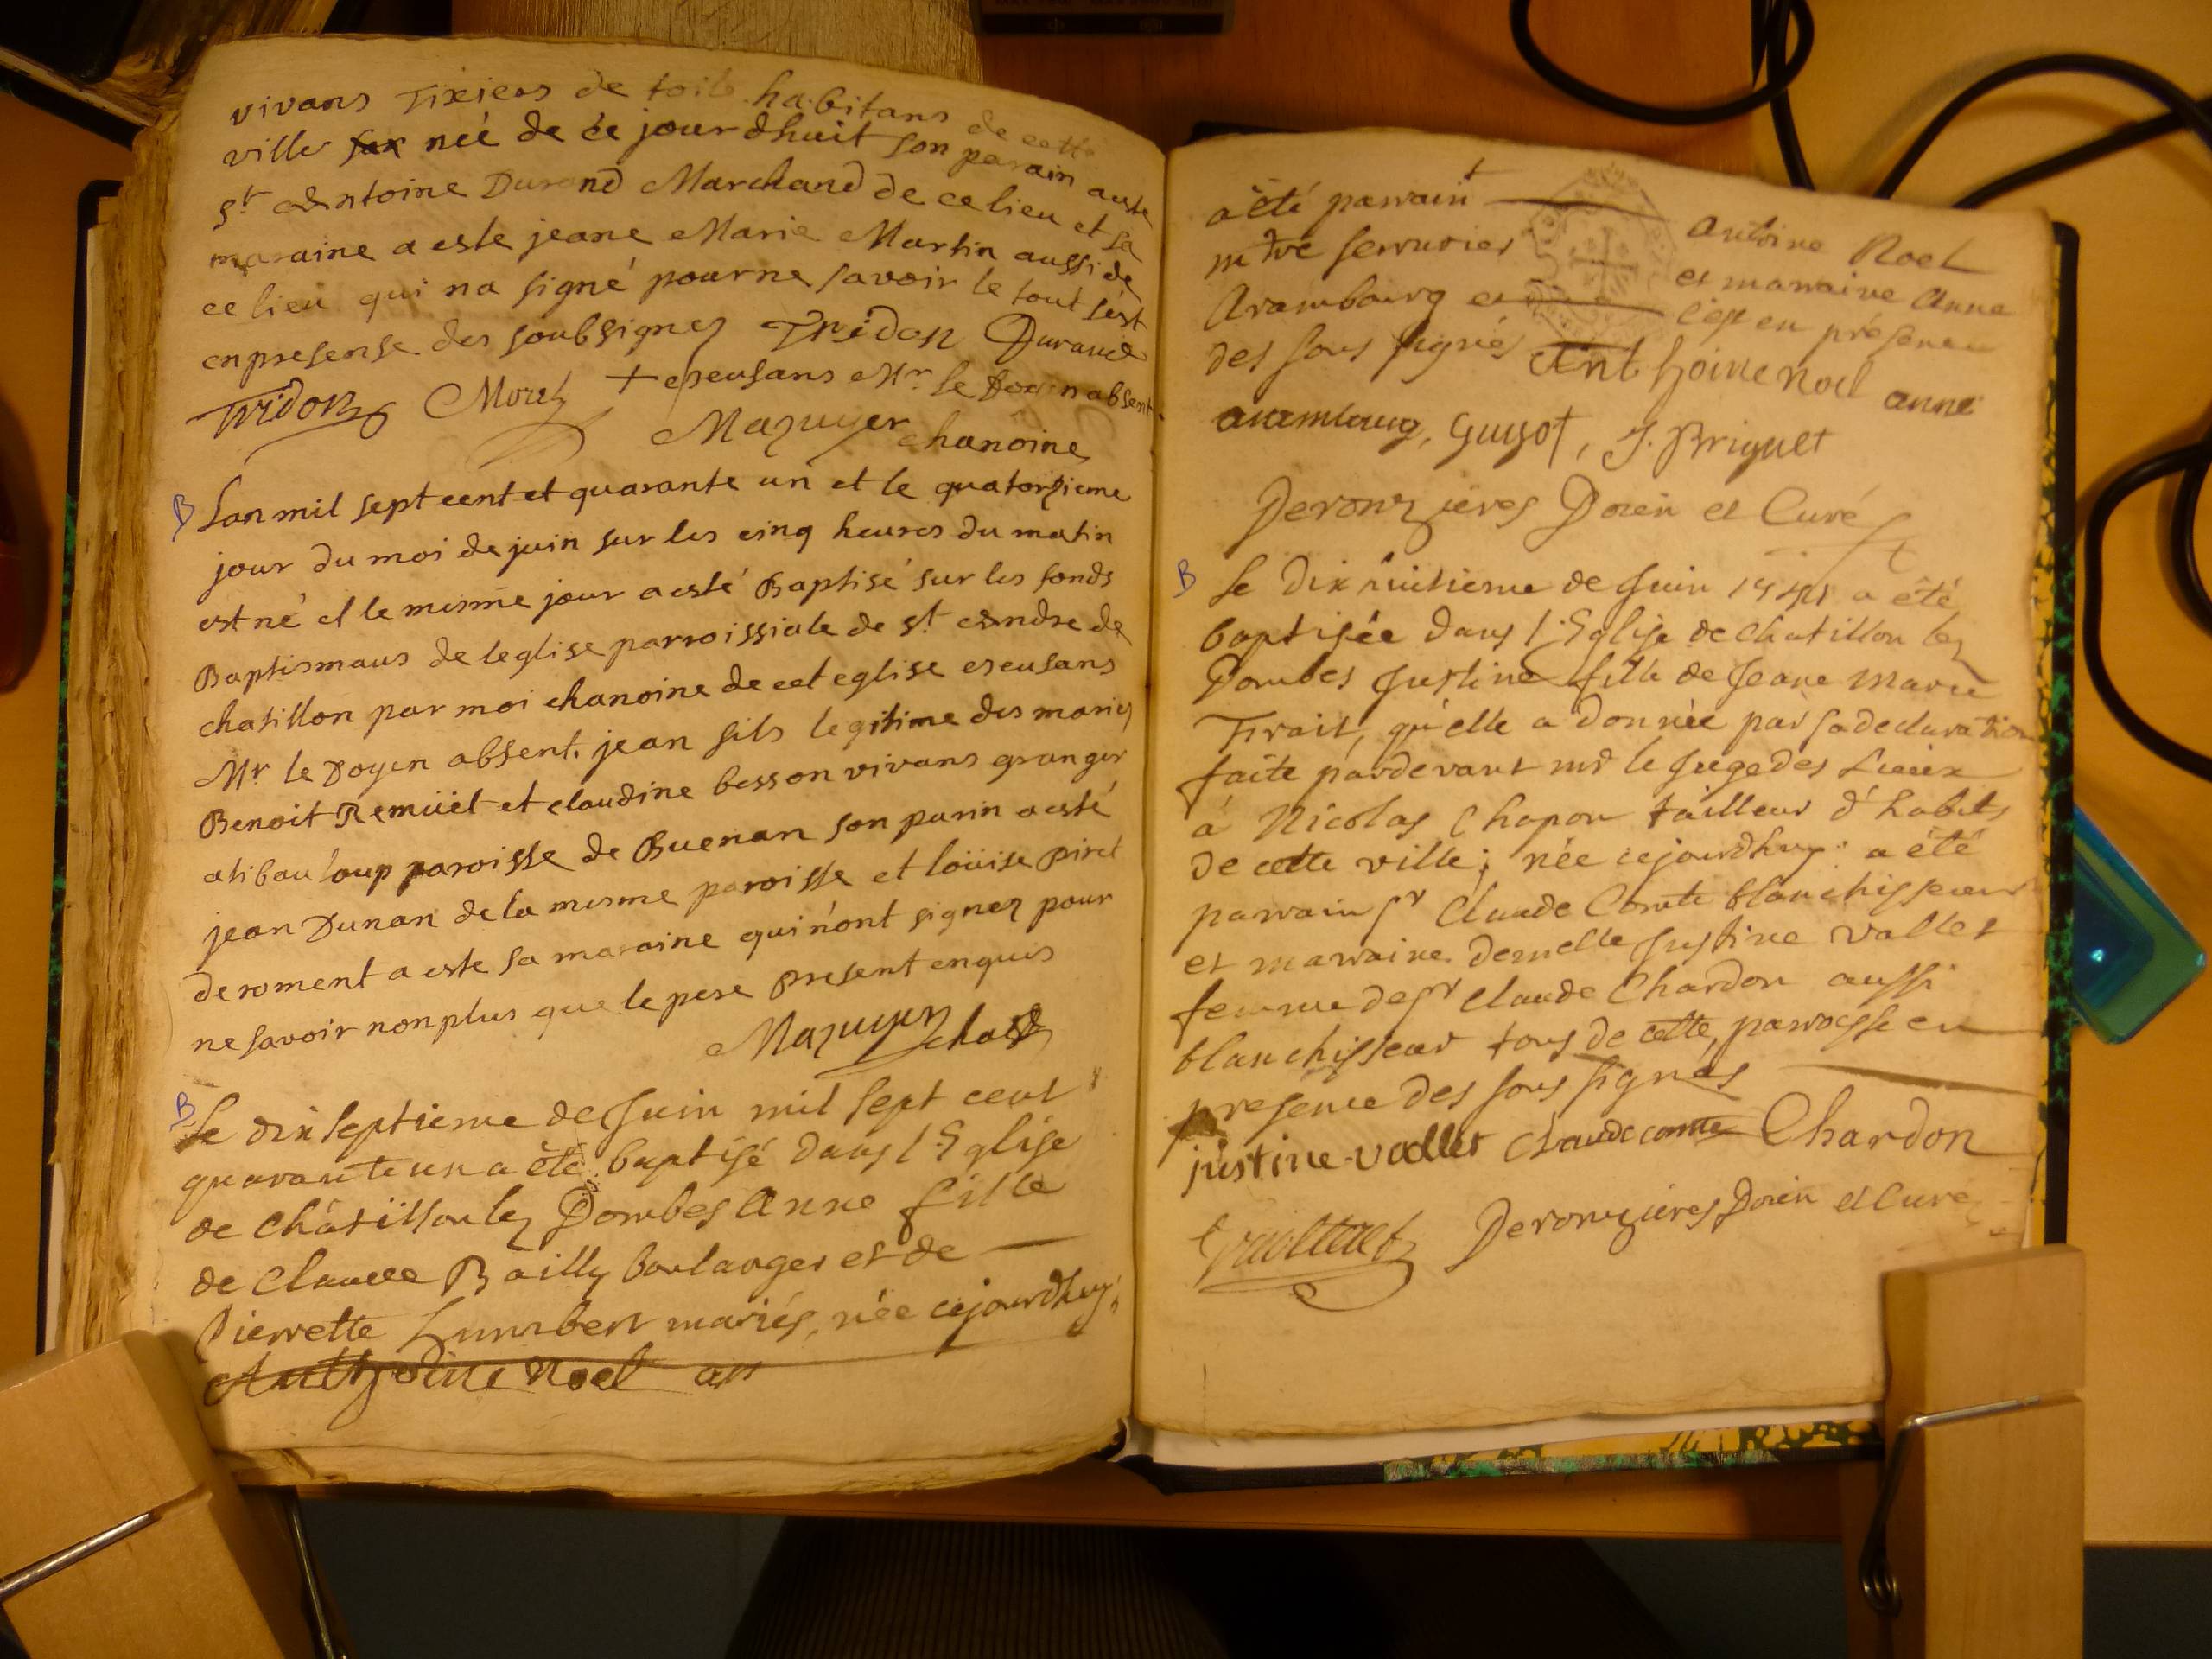 vivans Tixiers de toile habitans de cette
ville née de ce jourdhuit son parain aeste
sr Antoine Durand Marchand de ce lieu et sa
maraine a este jeane Marie Martin aussi de
ce lieu qui na signé pour ne savoir le tout s'est
en presense des soubsignez Tridon Durand
Tridon Morel + epeusans Mr le Doien absent
Mazuyer chanoine
B Lan mil sept cent et quarante un et le quatorzieme
jour du moi de juin sur les cinq heures du matin
est né et le mesme jour a esté Baptisé sur les fonds
Baptismaus de leglise parroissiale de st andre de
chatillon par moi chanoine de cet eglise eseusans
Mr le Doyen absent. jean fils legitime des mariez
Benoit Remüel et claudine besson vivans granger
a tibauloup paroisse de Buenan son parin a esté
jean Dunan de la mesme paroisse et loüise piret
de roment a este sa maraine qui n'ont signez pour
ne savoir non plus que le pere present enquis
Mazuyer
B Le dix septieme de Juin mil sept cent
quarante un a été baptisé dans l'Eglise
de Châtillon lez Dombes Anne fille
de Claude Bailly boulanger et de
Pierrette humbert mariés, née cejourdhuy;
Anthoine Noel an
a été parrain
Antoine Noel
mtre serrurier
et marraine Anne
Arambourg et
c'est en présence
des sous signés Anthoine noel anne
arambourg, Guyot, J. Briguet
Deronzieres Doien et Curé
B Le dix huitieme de Juin 1741 a été
baptisée dans l'Eglise de Chatillon lez
Dombes Justine fille de Jeane Marie
Tirait, qu'elle a donnée par sa declaration
faite pardevant mr le Juge des Lieux
à Nicolas Chapon tailleur d'habits
de cette ville; née cejourdhuy: a été
parrain sr Claude Comte blanchisseur
et marraine demelle Justine Vallet
femme de sr Claude Chardon aussi
blanchisseur tous de cette parroisse en
presence des sous signés
justine vallet Claude comte Chardon
Deronzieres Doien et Curé